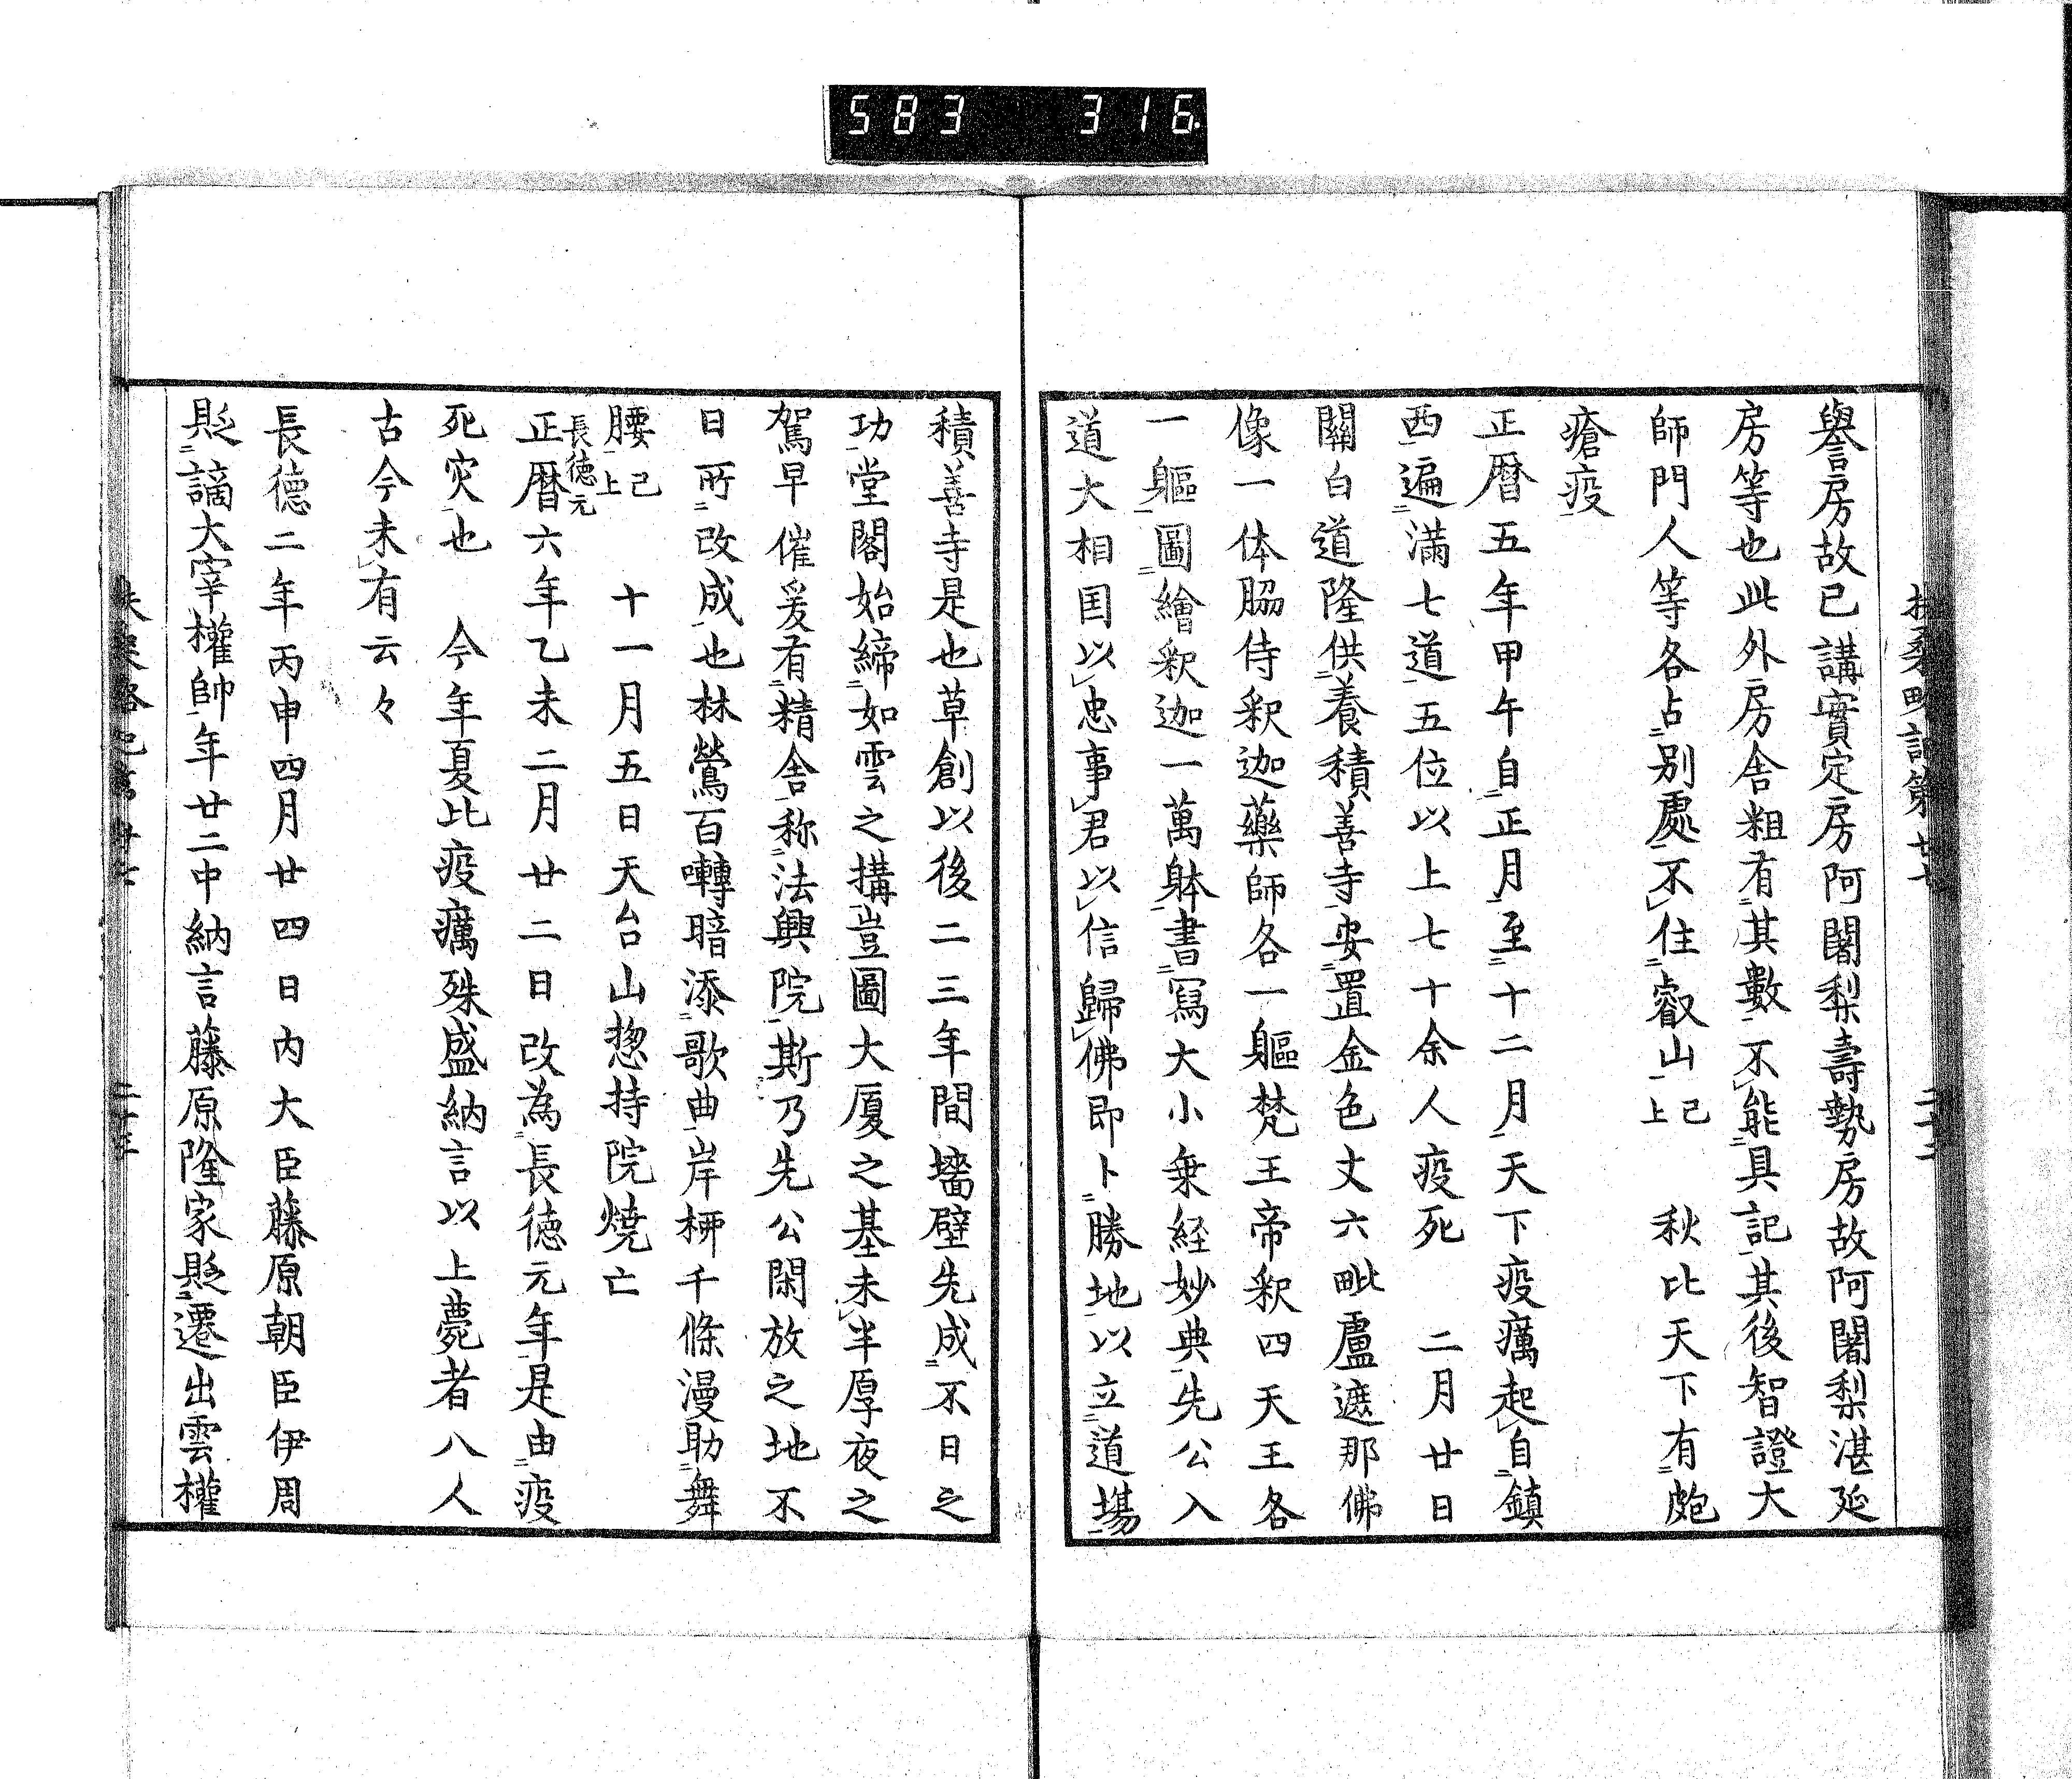 583 316
譽房故已講實定房阿闍梨壽勢房故阿闍梨湛延
房等也此外房舎粗有其數不能具記其後智證大
師門人等各占別處不住叡山已上 秋比天下有皰
瘡疫
正暦五年甲午自正月至十二月天下疫癘起自鎮
西遍滿七道五位以上七十余人疫死 二月廿日
關白道隆供養積善寺安置金色丈六毗盧遮那佛
像一体脇侍釈迦藥師各一軀梵王帝釈四天王各
一軀圖繪釈迦一萬躰書寫大小乗経妙典先公入
道大相国以忠事君以信歸佛即卜勝地以立道場
積善寺是也草創以後二三年間墻壁先成不日之
功堂閣始締如雲之搆豈圖大厦之基未半厚夜之
駕早催爰有精舎称法興院斯乃先公閑放之地不
日所改成也林鶯百囀暗添歌曲岸柳千條漫助舞
腰已上 十一月五日天台山惣持院焼亡
長徳元
正暦六年乙未二月廿二日改為長徳元年是由疫
死灾也 今年夏比疫癘殊盛納言以上薨者八人
古今未有云々
長徳二年丙申四月廿四日内大臣藤原朝臣伊周
貶謫大宰權帥年廿二中納言藤原隆家貶遷出雲權